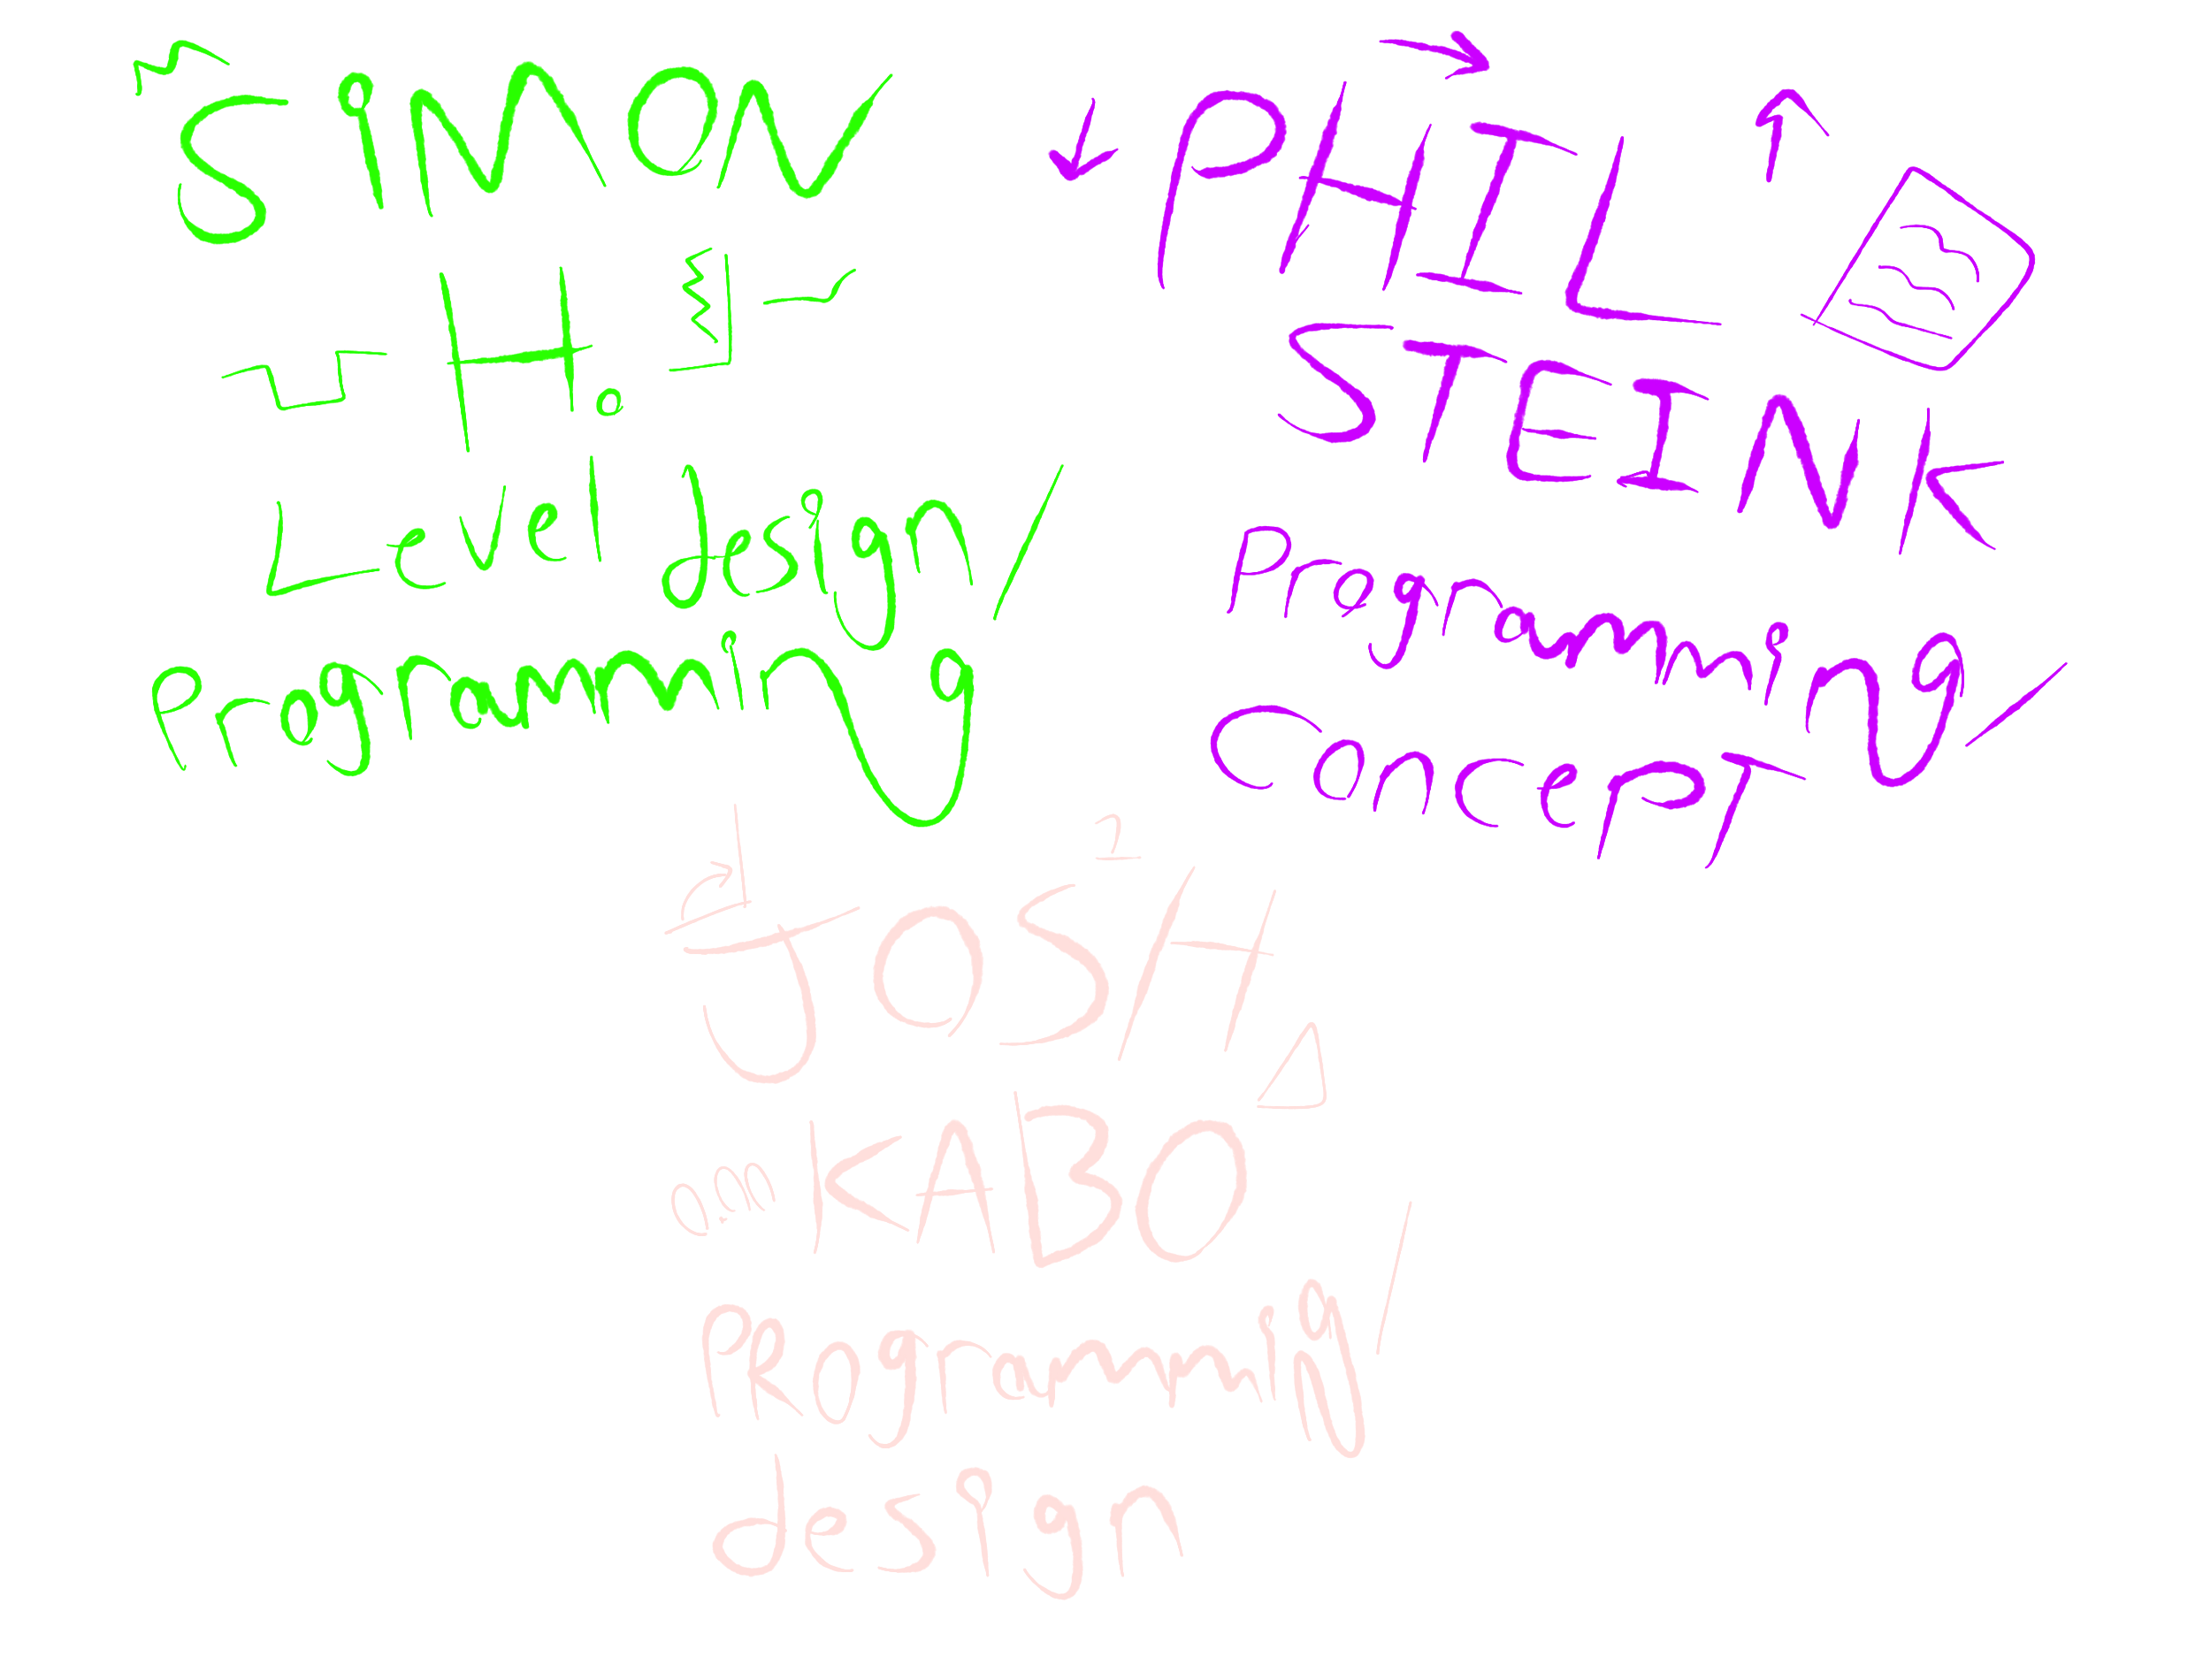 SiMON
H.
Level design/
Programming
PHIL
STEINK
Programming/
ConcepT
JOSH
KABO
PRogrammig/
design